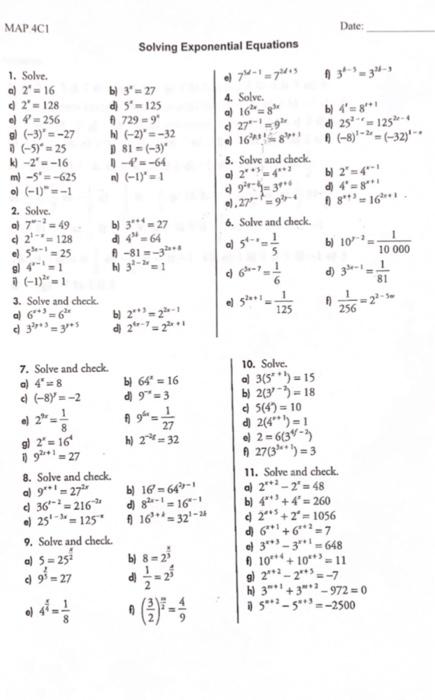 MAP 4C1
Date:
Solving Exponential Equations
1. Solve.
a) 2ˣ = 16 b) 3ˣ = 27
c) 2ˣ = 128 d) 5ˣ = 125
e) 4ʸ = 256 f) 729 = 9ˣ
g) (-3)ˣ = -27 h) (-2)ˣ = -32
i) (-5)ˣ = 25 j) 81 = (-3)ˣ
k) -2ˣ = -16 l) -4ʸ = -64
m) -5ˣ = -625 n) (-1)ˣ = 1
o) (-1)ᵐ = -1
2. Solve.
a) 7ʷ⁻² = 49 b) 3ˣ⁺⁴ = 27
c) 2¹⁻ˣ = 128 d) 4³ᵏ = 64
e) 5³ˣ⁻¹ = 25 f) -81 = -3²ˣ⁺⁸
g) 4ˣ⁻¹ = 1 h) 3²⁻²ˣ = 1
i) (-1)²ˣ = 1
3. Solve and check.
a) 6ˣ⁺³ = 6²ˣ b) 2ˣ⁺³ = 2²ˣ⁻¹
c) 3²ʸ⁺³ = 3ʸ⁺⁵ d) 2⁴ˣ⁻⁷ = 2²ˣ⁺¹
e) 7⁵ᵈ⁻¹ = 7²ᵈ⁺⁵ f) 3ᵇ⁻⁵ = 3²ᵇ⁻³
4. Solve.
a) 16²ˣ = 8³ˣ b) 4ᵗ = 8ᵗ⁺¹
c) 27ˣ⁻¹ = 9²ˣ d) 25²⁻ᶜ = 125²ᶜ⁻⁴
e) 16²ᵖ⁺¹ = 8³ᵖ⁺¹ f) (-8)¹⁻²ˣ = (-32)¹⁻ˣ
5. Solve and check.
a) 2ˣ⁺⁵ = 4ˣ⁺² b) 2ˣ = 4ˣ⁻¹
c) 9²ᵠ⁻⁶ = 3ᵠ⁺⁶ d) 4ˣ = 8ˣ⁺¹
e) 27ʸ⁻¹ = 9²ʸ⁻⁴ f) 8ˣ⁺³ = 16²ˣ⁺¹
6. Solve and check.
a) 5⁴⁻ˣ = 1/5 b) 10ʸ⁻² = 1/10 000
c) 6³ˣ⁻⁷ = 1/6 d) 3³ˣ⁻¹ = 1/81
e) 5²ⁿ⁺¹ = 1/125 f) 1/256 = 2²⁻⁵ʷ
7. Solve and check.
a) 4ˣ = 8 b) 64ˣ = 16
c) (-8)ʸ = -2 d) 9⁻ˣ = 3
e) 2⁹ˣ = 1/8 f) 9⁶ˣ = 1/27
g) 2ˣ = 16⁴ h) 2⁻²ᵍ = 32
i) 9²ᵗ⁺¹ = 27
8. Solve and check.
a) 9ˣ⁺¹ = 27²ˣ b) 16ʸ = 64²ʸ⁻¹
c) 36ᵗ⁻² = 216⁻²ˢ d) 8²ˣ⁻¹ = 16ˣ⁻¹
e) 25¹⁻³ˣ = 125⁻ˣ f) 16³⁺ᵏ = 32¹⁻²ᵏ
9. Solve and check.
a) 5 = 25^(x/2) b) 8 = 2^(x/3)
c) 9^(x/2) = 27 d) 1/2 = 2^(d/3)
e) 4^(x/4) = 1/8 f) (3/2)^(m/2) = 4/9
10. Solve.
a) 3(5ˣ⁺¹) = 15
b) 2(3ʸ⁻²) = 18
c) 5(4ˣ) = 10
d) 2(4ᵛ⁺¹) = 1
e) 2 = 6(3⁴ᶠ⁻²)
f) 27(3³ˣ⁺¹) = 3
11. Solve and check.
a) 2ˣ⁺² - 2ˣ = 48
b) 4ˣ⁺³ + 4ˣ = 260
c) 2ᵃ⁺⁵ + 2ᵃ = 1056
d) 6ˣ⁺¹ + 6ˣ⁺² = 7
e) 3ˣ⁺³ - 3ˣ⁺¹ = 648
f) 10ˣ⁺⁴ + 10ˣ⁺³ = 11
g) 2ˣ⁺² - 2ˣ⁺⁵ = -7
h) 3ᵐ⁺¹ + 3ᵐ⁺² - 972 = 0
i) 5ⁿ⁺² - 5ⁿ⁺³ = -2500